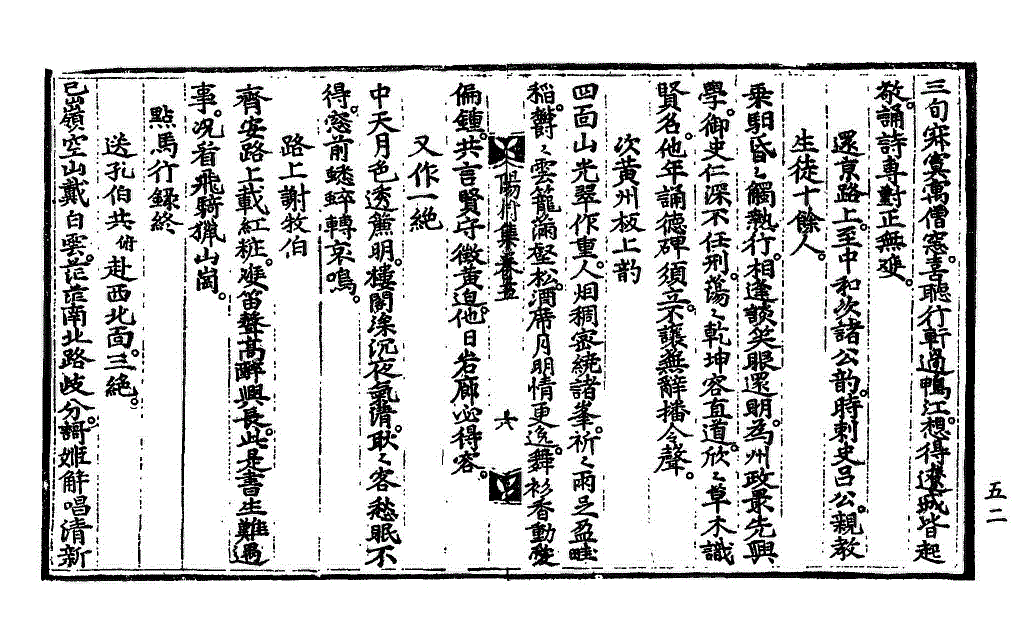 三旬寂寞寓僧窓。喜聽行軒過鴨江。想得邊城皆起
敬。誦詩專對正無雙。
還京路上。至中和。次諸公韵。時刺史呂公。親教
生徒十餘人。
乘馹昏〻觸熱行。相逢談笑眼還明。爲州政最先興
學。御史仁深不任刑。蕩〻乾坤容直道。欣〻草木識
賢名。他年誦德碑須立。不讓無辭播令聲。
次黃州板上韵
四面山光翠作重。人烟稠密繞諸峯。祈〻雨足盈畦
稻。鬱〻雲籠滿壑松。酒席月明情更逸。舞衫香動鬢
陽村集卷五
六
偏鍾。共言賢守徵黃迫。他日岩廊必得容。
又作一絶
中天月色透簾明。樓閣深沉夜氣淸。耿〻客愁眠不
得。窓前蟋蟀轉哀鳴。
路上謝牧伯
齊安路上載紅粧。雙笛聲高醉興長。此是書生難過
事。况看飛騎獵山崗。
點馬行錄終
送孔伯共俯赴西北面。三絶。
己嶺空山戴白雲。茫茫南北路歧分。謌姬解唱淸新
五二